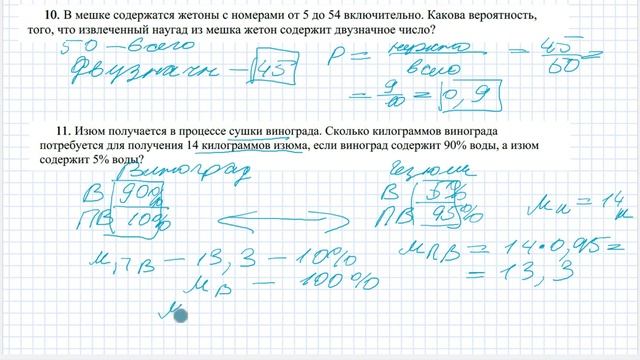 10. В мешке содержатся жетоны с номерами от 5 до 54 включительно. Какова вероятность,
того, что извлеченный наугад из мешка жетон содержит двузначное число?
50 – всего
двузначн – 45
P = / всего = 45/50 =
= 9/10 = 0,9
11. Изюм получается в процессе сушки винограда. Сколько килограммов винограда
потребуется для получения 14 килограммов изюма, если виноград содержит 90% воды, а изюм
содержит 5% воды?
Виноград
В 90%
ПВ 10%
Изюм
В 5%
ПВ 95%
Mи = 14
MПВ – 13,3 – 10%
MВ – 100%
MПВ = 14·0,95 =
= 13,3
M